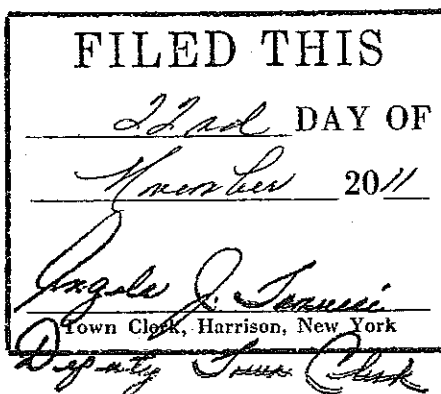 FILED THIS
22nd DAY OF
November 2011
Angela J.
Town Clerk, Harrison, New York
Deputy Town Clerk